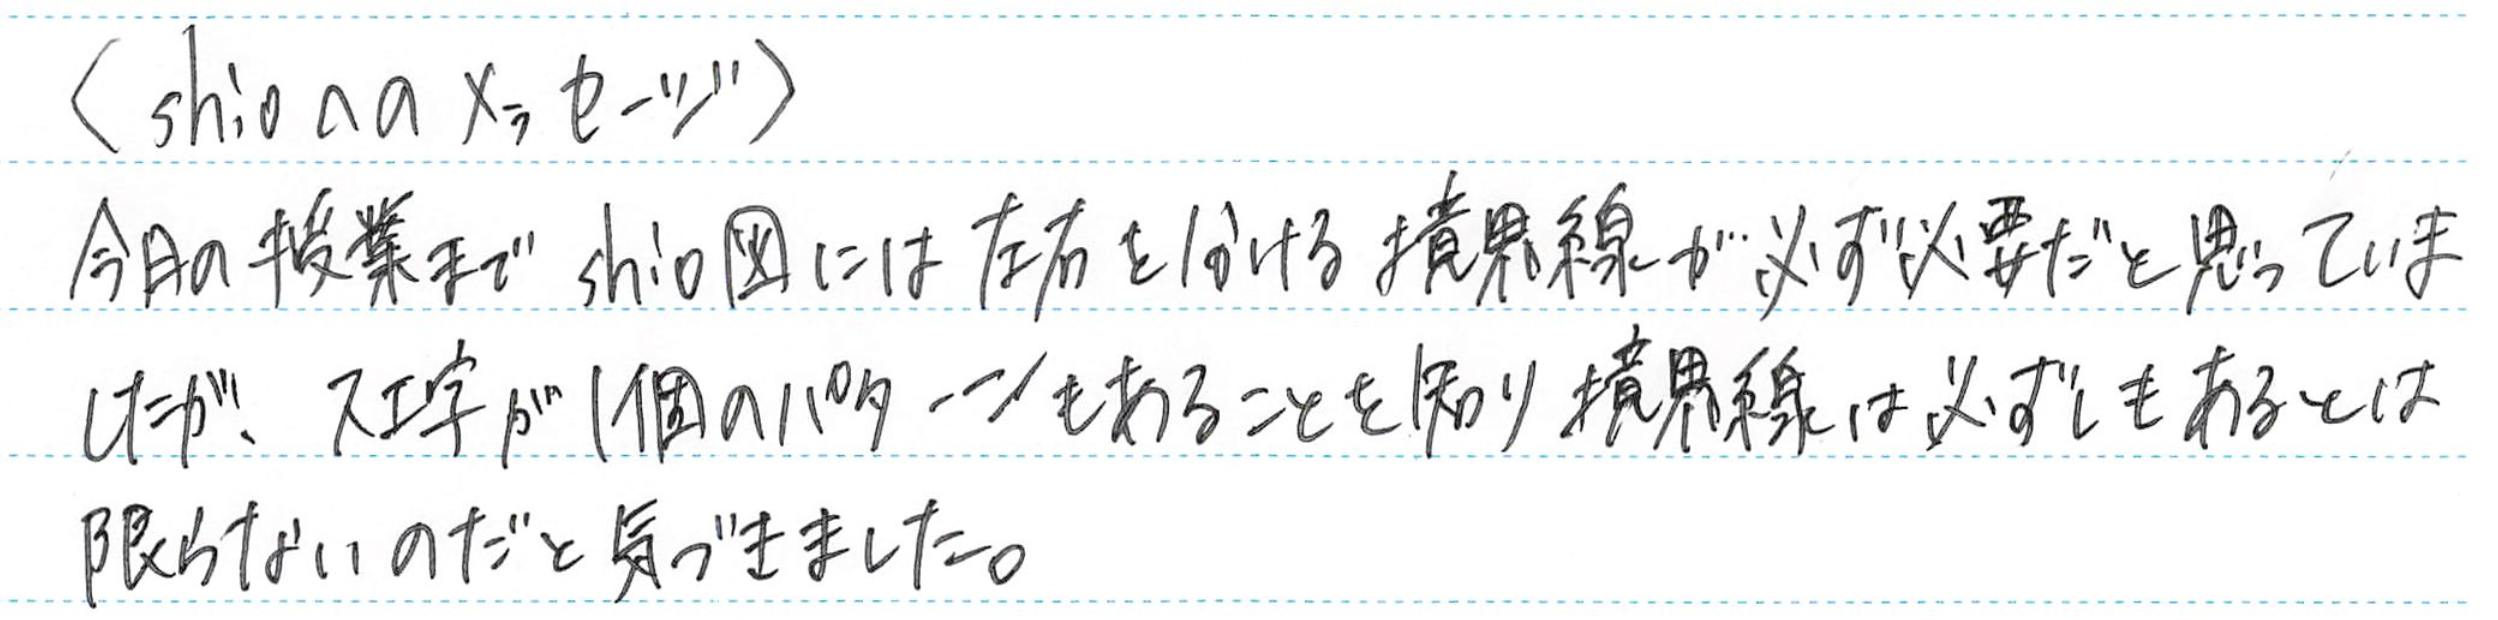 〈shioへのメッセージ〉
今日の授業まで shio図には左右を分ける境界線が必ず必要だと思っていま
したが、文字が1個のパターンもあることを知り境界線は必ずしもあるとは
限らないのだと気づきました。